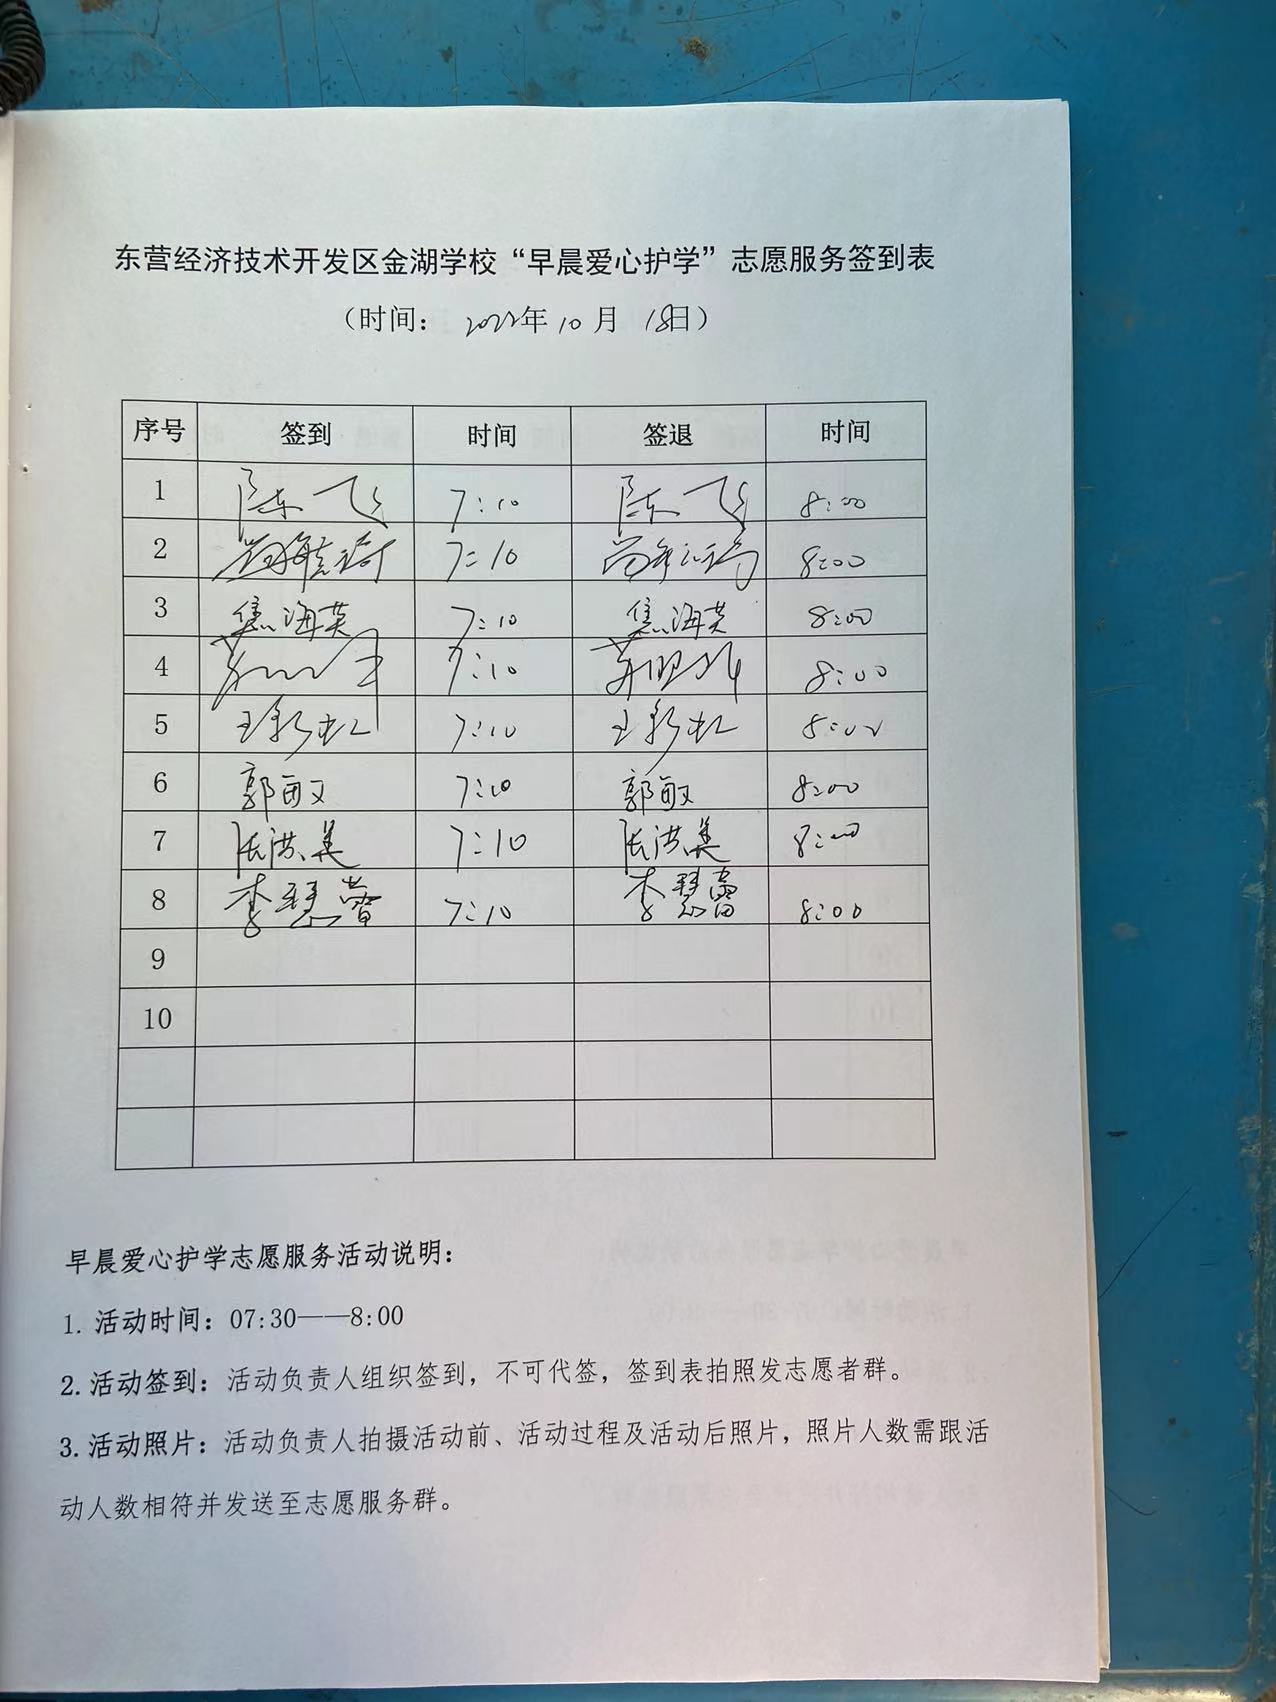 东营经济技术开发区金湖学校“早晨爱心护学”志愿服务签到表
（时间： 2022年 10 月 18日）
序号 签到 时间 签退 时间
1 陈飞 7:10 陈飞 8:00
2 7:10 8:00
3 焦海英 7:10 焦海英 8:00
4 7:10 8:00
5 王彩虹 7:10 王彩虹 8:00
6 郭敏 7:10 郭敏 8:00
7 张洪美 7:10 张洪美 8:00
8 李慧蕾 7:10 李慧 8:00
9
10
早晨爱心护学志愿服务活动说明：
1. 活动时间：07:30——8:00
2. 活动签到：活动负责人组织签到，不可代签，签到表拍照发志愿者群。
3. 活动照片：活动负责人拍摄活动前、活动过程及活动后照片，照片人数需跟活
动人数相符并发送至志愿服务群。